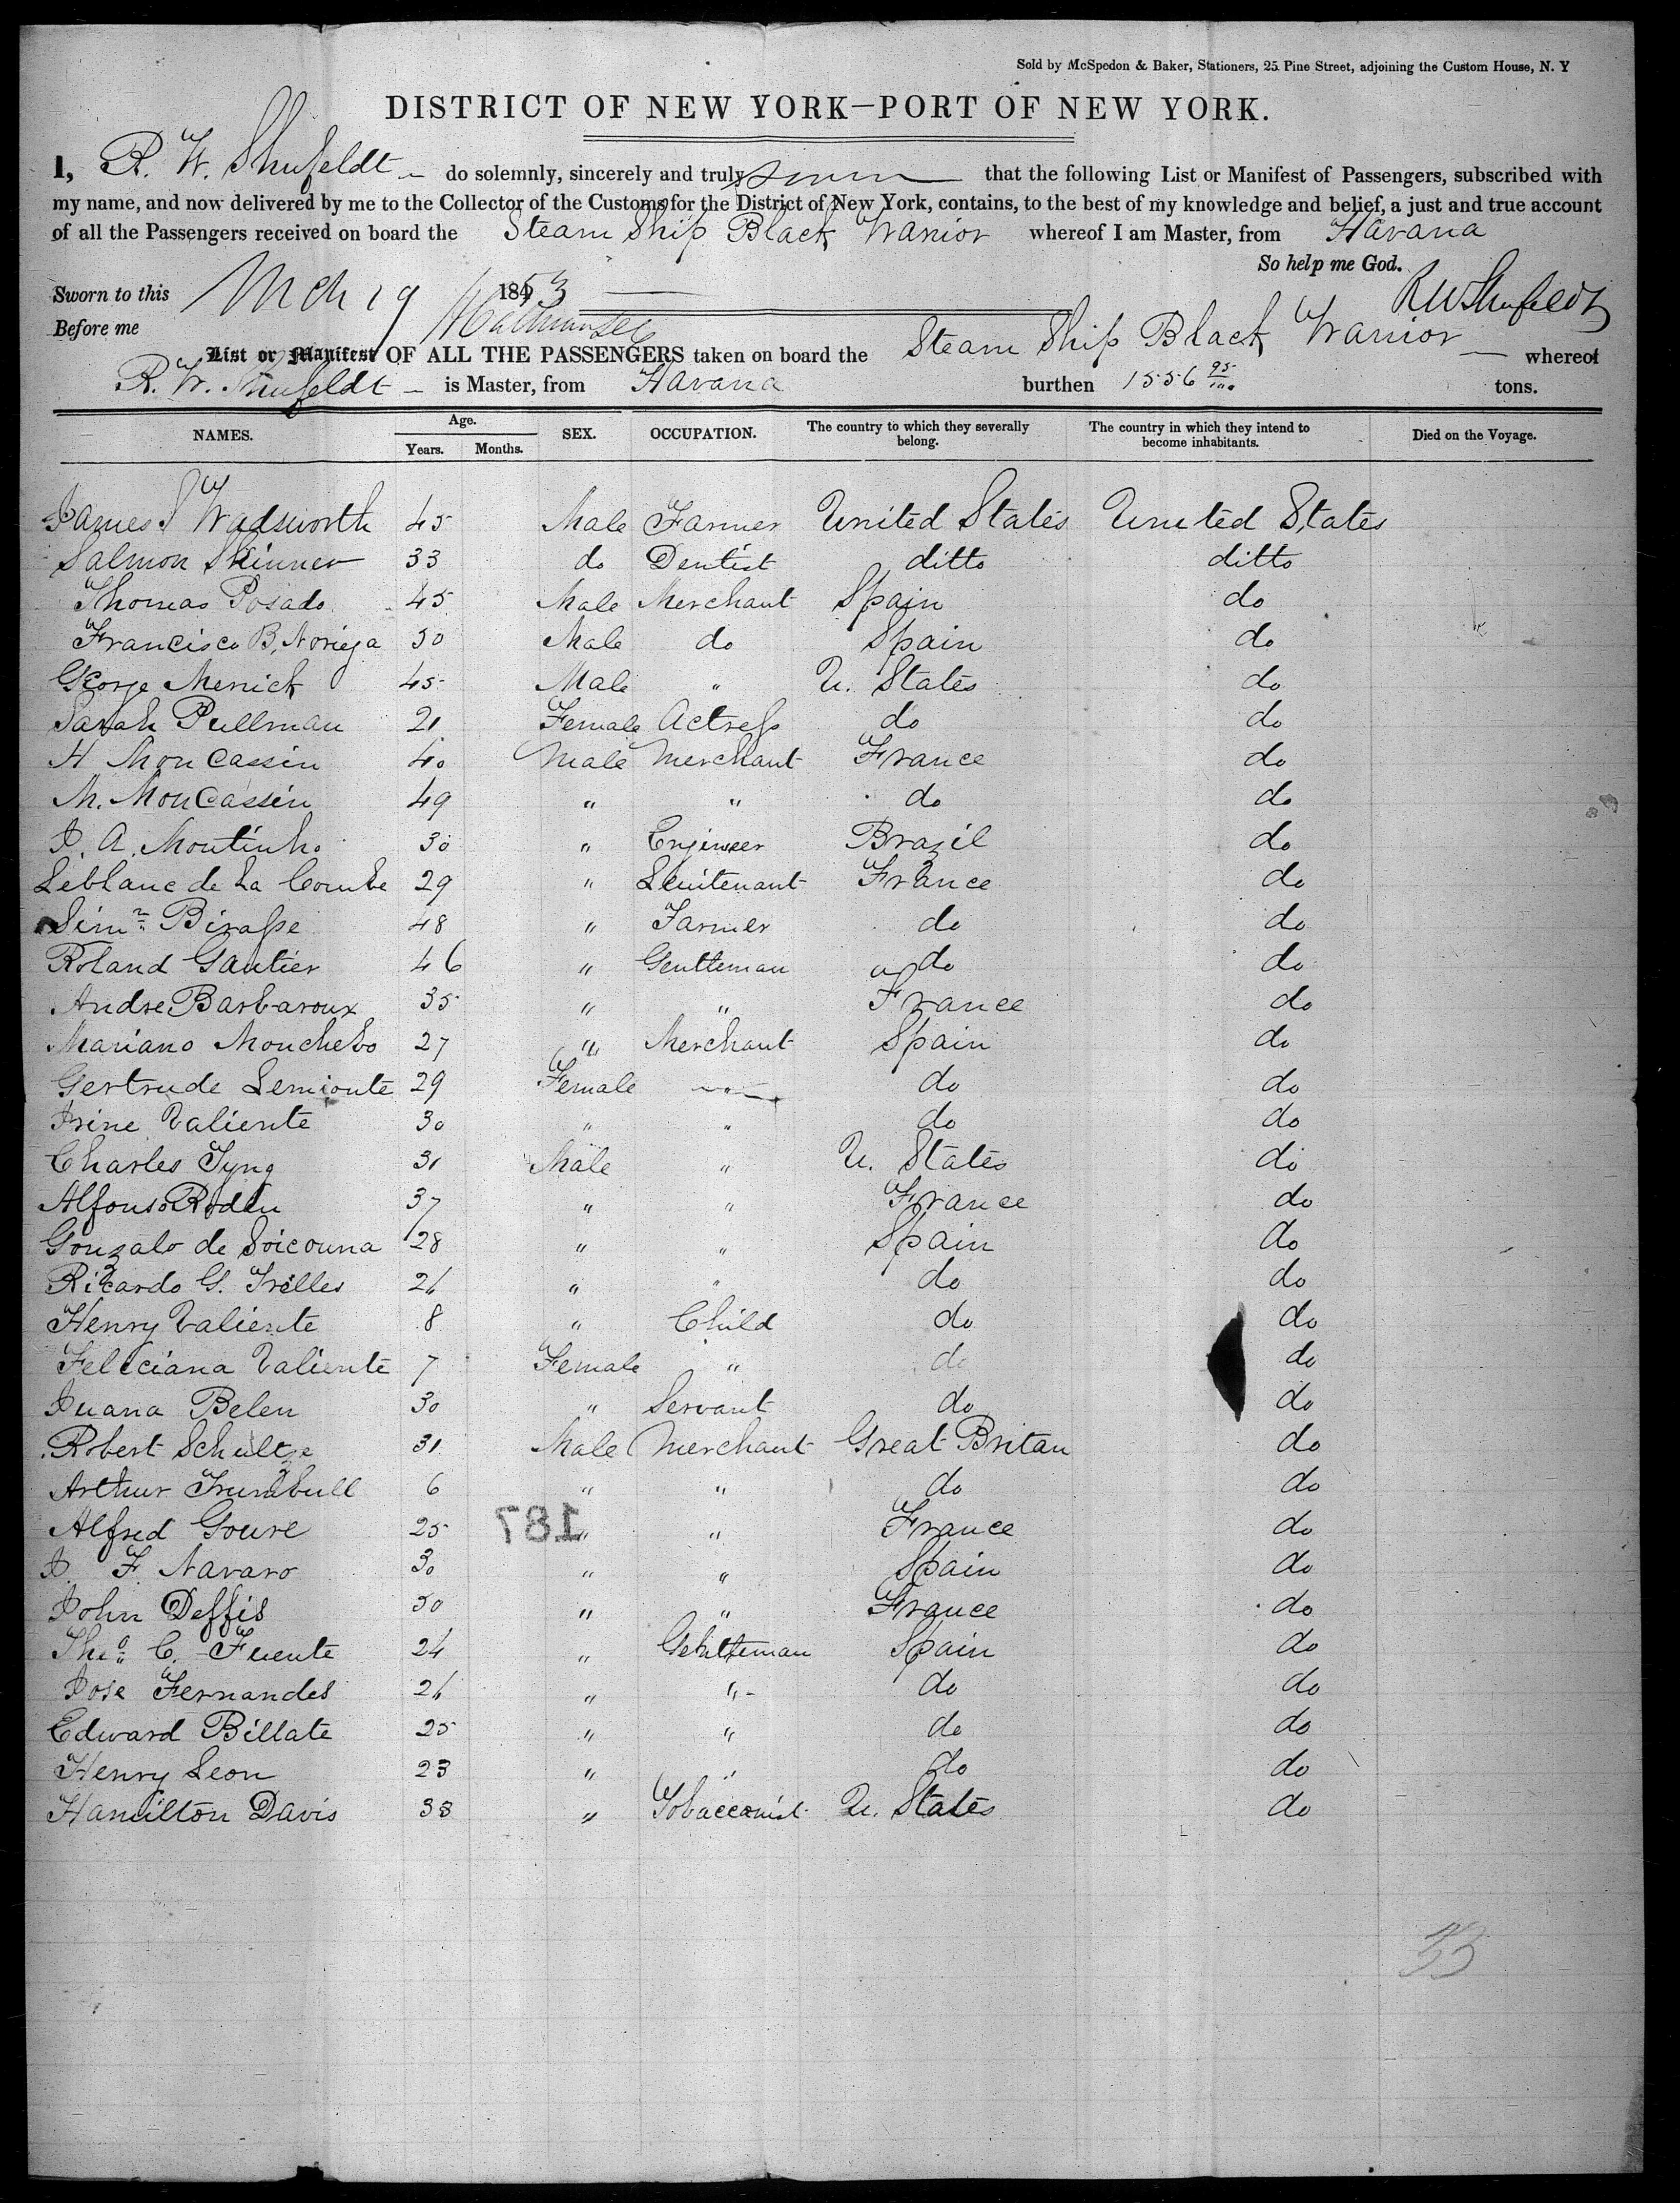 Sold by McSpedon & Baker, Stationers, 25 Pine Street, adjoining the Custom House, N. Y
DISTRICT OF NEW YORK—PORT OF NEW YORK.
I, R. W. Shufeldt do solemnly, sincerely and truly swear that the following List or Manifest of Passengers, subscribed with
my name, and now delivered by me to the Collector of the Customs for the District of New York, contains, to the best of my knowledge and belief, a just and true account
of all the Passengers received on board the Steam Ship Black Warrior whereof I am Master, from Havana
So help me God.
Sworn to this Mch 19 1853 RWShufeldt
Before me
List or Manifest OF ALL THE PASSENGERS taken on board the Steam Ship Black Warrior whereof
R. W. Shufeldt is Master, from Havana burthen 1556 95/100 tons.
NAMES. Age. Years. Months. SEX. OCCUPATION. The country to which they severally belong. The country in which they intend to become inhabitants. Died on the Voyage.
James S Wadsworth 45 Male Farmer United States United States
Salmon Skinner 33 do Dentist ditto ditto
Thomas Posado 45 Male Merchant Spain do
Francisco B. Noriega 50 Male do Spain do
George Merrick 45 Male " U. States do
Sarah Pullman 21 Female Actress do do
H Moncassin 40 Male Merchant France do
M. Moncassin 49 " " do do
J. A. Moutinho 30 " Engineer Brazil do
Leblanc de La Combe 29 " Leuitenant France do
Simn Birasse 48 " Farmer do do
Roland Gautier 46 " Gentleman do do
Andre Barbaroux 35 " " France do
Mariano Monchebo 27 " Merchant Spain do
Gertrude Lemionte 29 Female " do do
Irine Valiente 30 " " do do
Charles Tyng 31 Male " U. States do
Alfonso 37 " " France do
Gonzalo de 28 " " Spain do
Ricardo G. Trelles 26 " " do do
Henry Valiente 8 " Child do do
Feliciana Valiente 7 Female " do do
Juana Belen 30 " Servant do do
Robert Schultze 31 Male Merchant Great Britan do
Arthur Trumbull 6 " " do do
Alfred Goure 25 " " France do
187
J. F. Navaro 30 " " Spain do
John Deffis 50 " " France do
Tho. C. Fuente 24 " Gentleman Spain do
Jose Fernandes 26 " " do do
Edward Billate 25 " " do do
Henry Leon 23 " " do do
Hamilton Davis 38 " Tobacconist U. States do
33